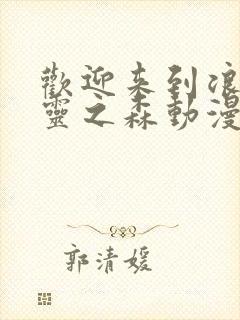 歡迎来到浪
靈之森動漫
郭清媛